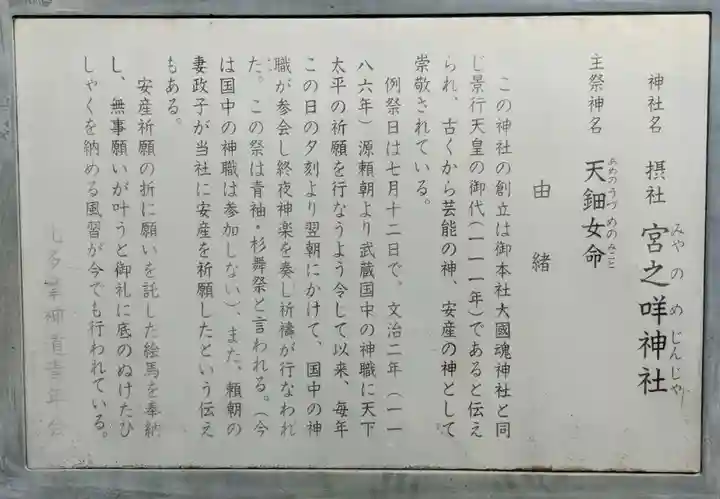 神社名 摂社 宮之咩神社
みやのめじんじゃ
主祭神名 天鈿女命
あめのうづめのみこと
由緒
この神社の創立は御本社大國魂神社と同
じ景行天皇の御代(一一一年)であると伝え
られ、古くから芸能の神、安産の神として
崇敬されている。
例祭日は七月十二日で、文治二年(一一
八六年)源頼朝より武蔵国中の神職に天下
太平の祈願を行なうよう令して以来、毎年
この日の夕刻より翌朝にかけて、国中の神
職が参会し終夜神楽を奏し祈禱が行なわれ
た。この祭は青袖・杉舞祭と言われる。(今
は国中の神職は参加しない)、また、頼朝の
妻政子が当社に安産を祈願したという伝え
もある。
安産祈願の折に願いを託した絵馬を奉納
し、無事願いが叶うと御礼に底のぬけたひ
しゃくを納める風習が今でも行われている。
青年会